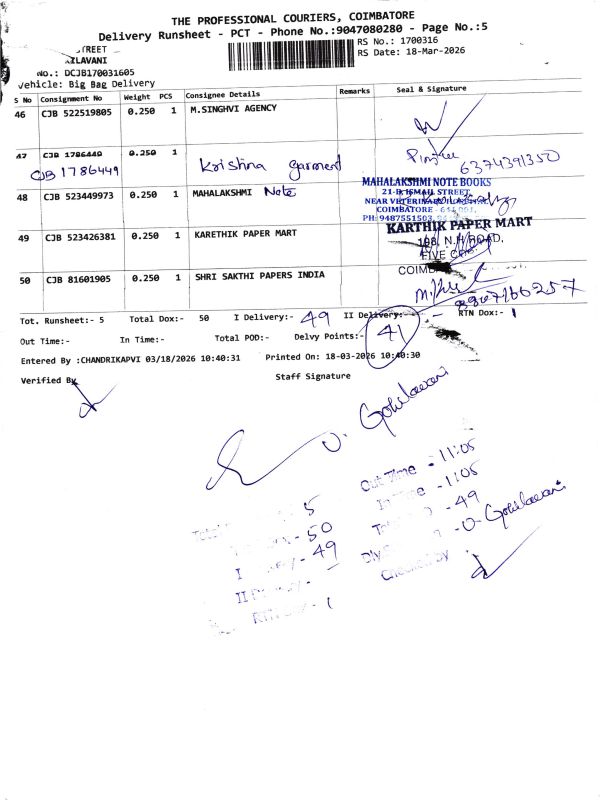 THE PROFESSIONAL COURIERS, COIMBATORE
Delivery Runsheet - PCT - Phone No.:9047080280 - Page No.:5
STREET
RS No.: 1700316
ILAVANI
RS Date: 18-Mar-2026
No.: DCJB170031605
Vehicle: Big Bag Delivery
S No Consignment No Weight PCS Consignee Details Remarks Seal & Signature
46 CJB 522519805 0.250 1 M.SINGHVI AGENCY
47 CJB 1786449 0.250 1
CJB 1786449 Krishna garment 6374391350
48 CJB 523449973 0.250 1 MAHALAKSHMI Note
MAHALAKSHMI NOTE BOOKS
21-B, ISMAIL STREET,
NEAR VETERINARY
COIMBATORE - 641 001.
PH: 9487551503,
49 CJB 523426381 0.250 1 KARETHIK PAPER MART
KARTHIK PAPER MART
198, N.H. ROAD,
FIVE
COIMB
50 CJB 81601905 0.250 1 SHRI SAKTHI PAPERS INDIA
8907166257
Tot. Runsheet:- 5 Total Dox:- 50 I Delivery:- 49 II Delivery:- - RTN Dox:- 1
Out Time:- In Time:- Total POD:- Delvy Points:- 41
Entered By :CHANDRIKAPVI 03/18/2026 10:40:31 Printed On: 18-03-2026 10:40:30
Verified By Staff Signature
U. Gokilavani
5 Out Time - 11:05
- 50 In Time - 1:05
I - 49 - 49
II - - U. Gokilavani
RTN - 1 Checked by